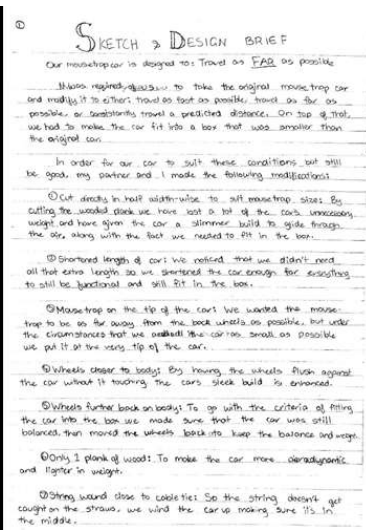 ①
SKETCH & DESIGN BRIEF
Our mousetrap car is designed to: Travel as FAR as possible
It was required of us to take the original mouse trap car
and modify it to either: travel as fast as possible, travel as far as
possible, or consistantly travel a predicted distance. On top of that,
we had to make the car fit into a box that was smaller than
the original car.
In order for our car to suit these conditions but still
be good, my partner and I made the following modifications:
① Cut directly in half width-wise to suit mousetrap size: By
cutting the wooded plank we have lost a lot of the cars unnecessary
weight and have given the car a slimmer build to glide through
the air, along with the fact we needed to fit in the box.
② Shortened length of car: We noticed that we didn't need
all that extra length so we shortened the car enough for everything
to still be functional and still fit in the box.
③ Mousetrap on the tip of the car: We wanted the mouse-
trap to be as far away from the back wheels as possible, but under
the circumstances that we the car as small as possible
we put it at the very tip of the car.
④ Wheels closer to body: By having the wheels flush against
the car without it touching the cars sleek build is enhanced.
⑤ Wheels further back on body: To go with the criteria of fitting
the car into the box we made sure that the car was still
balanced, then moved the wheels back to keep the balance and weight.
⑥ Only 1 plank of wood: To make the car more aerodynamic
and lighter in weight.
⑦ String wound close to cable ties: So the string doesn't get
caught on the straws, we wind the car up making sure it's in
the middle.